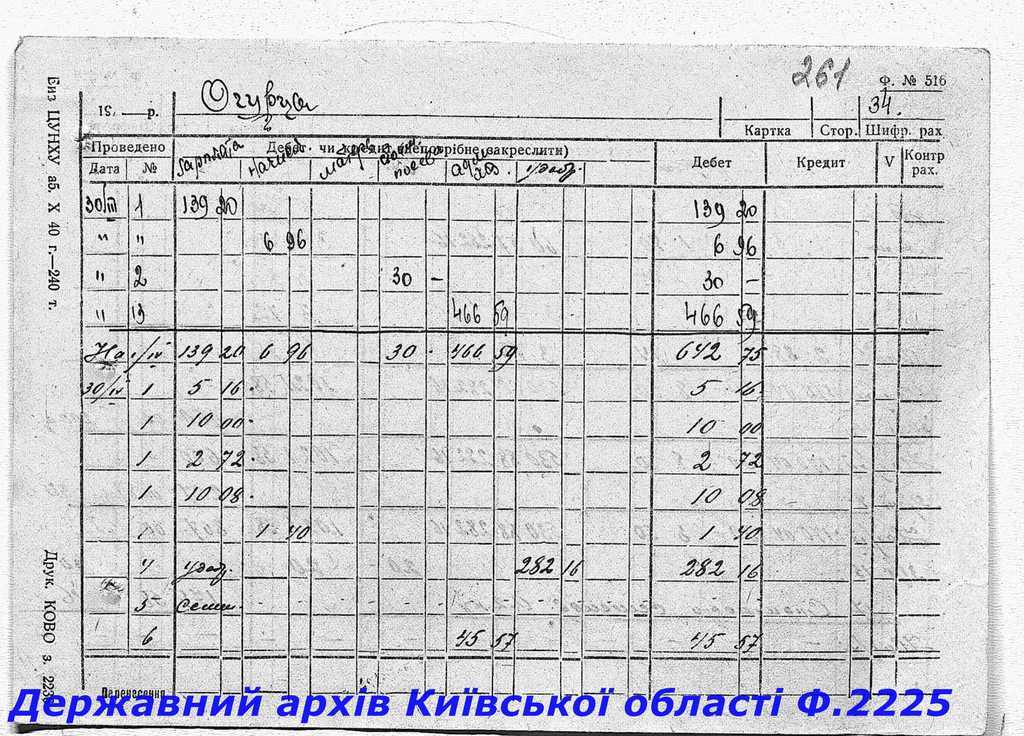 261
Ф. № 516
19. р. Огурца
34.
Картка Стор. Шифр. рах.
Проведено Дебет чи кредит (непотрібне закреслити) Дебет Кредит V Контр рах.
Дата № Зарплата Начисл удобр.
30/III 1 139 20 139 20
" " 6 96 6 96
" 2 30 – 30 –
" 3 466 59 466 59
На 1/IV 139 20 6 96 30 - 466 59 642 75
30/IV 1 5 16 5 16
1 10 00 10 00
1 2 72 2 72
1 10 08 10 08
1 1 40 1 40
4 удобр. 282 16 282 16
5 Семин - - - - - -
6 45 57 45 57
Перенесення
Биз ЦУНХУ зб. X 40 г.—240 т.
Друк. КОВО з. 223
Державний архів Київської області Ф.2225